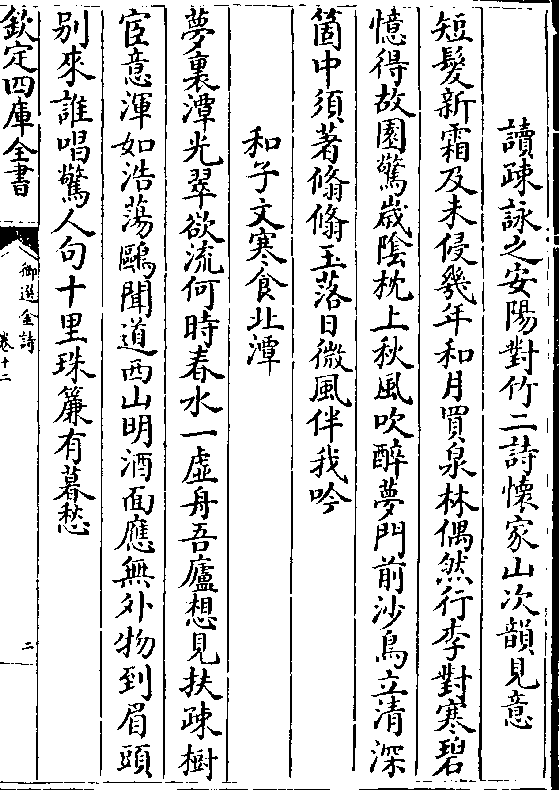 讀疎詠之安陽對竹二詩懷家山次韻見意
短髮新霜及未侵幾年和月買泉林偶然行李對寒碧
憶得故園驚歲陰枕上秋風吹醉夢門前沙鳥立清深
箇中須著翛翛玉落日微風伴我吟
和子文寒食北潭
夢裏潭光翠欲流何時春水一虛舟吾廬想見扶疎樹
宦意渾如浩蕩鷗聞道西山明酒面應無外物到眉頭
别來誰唱驚人句十里珠簾有暮愁
欽定四庫全書
御選金詩
卷十二
二